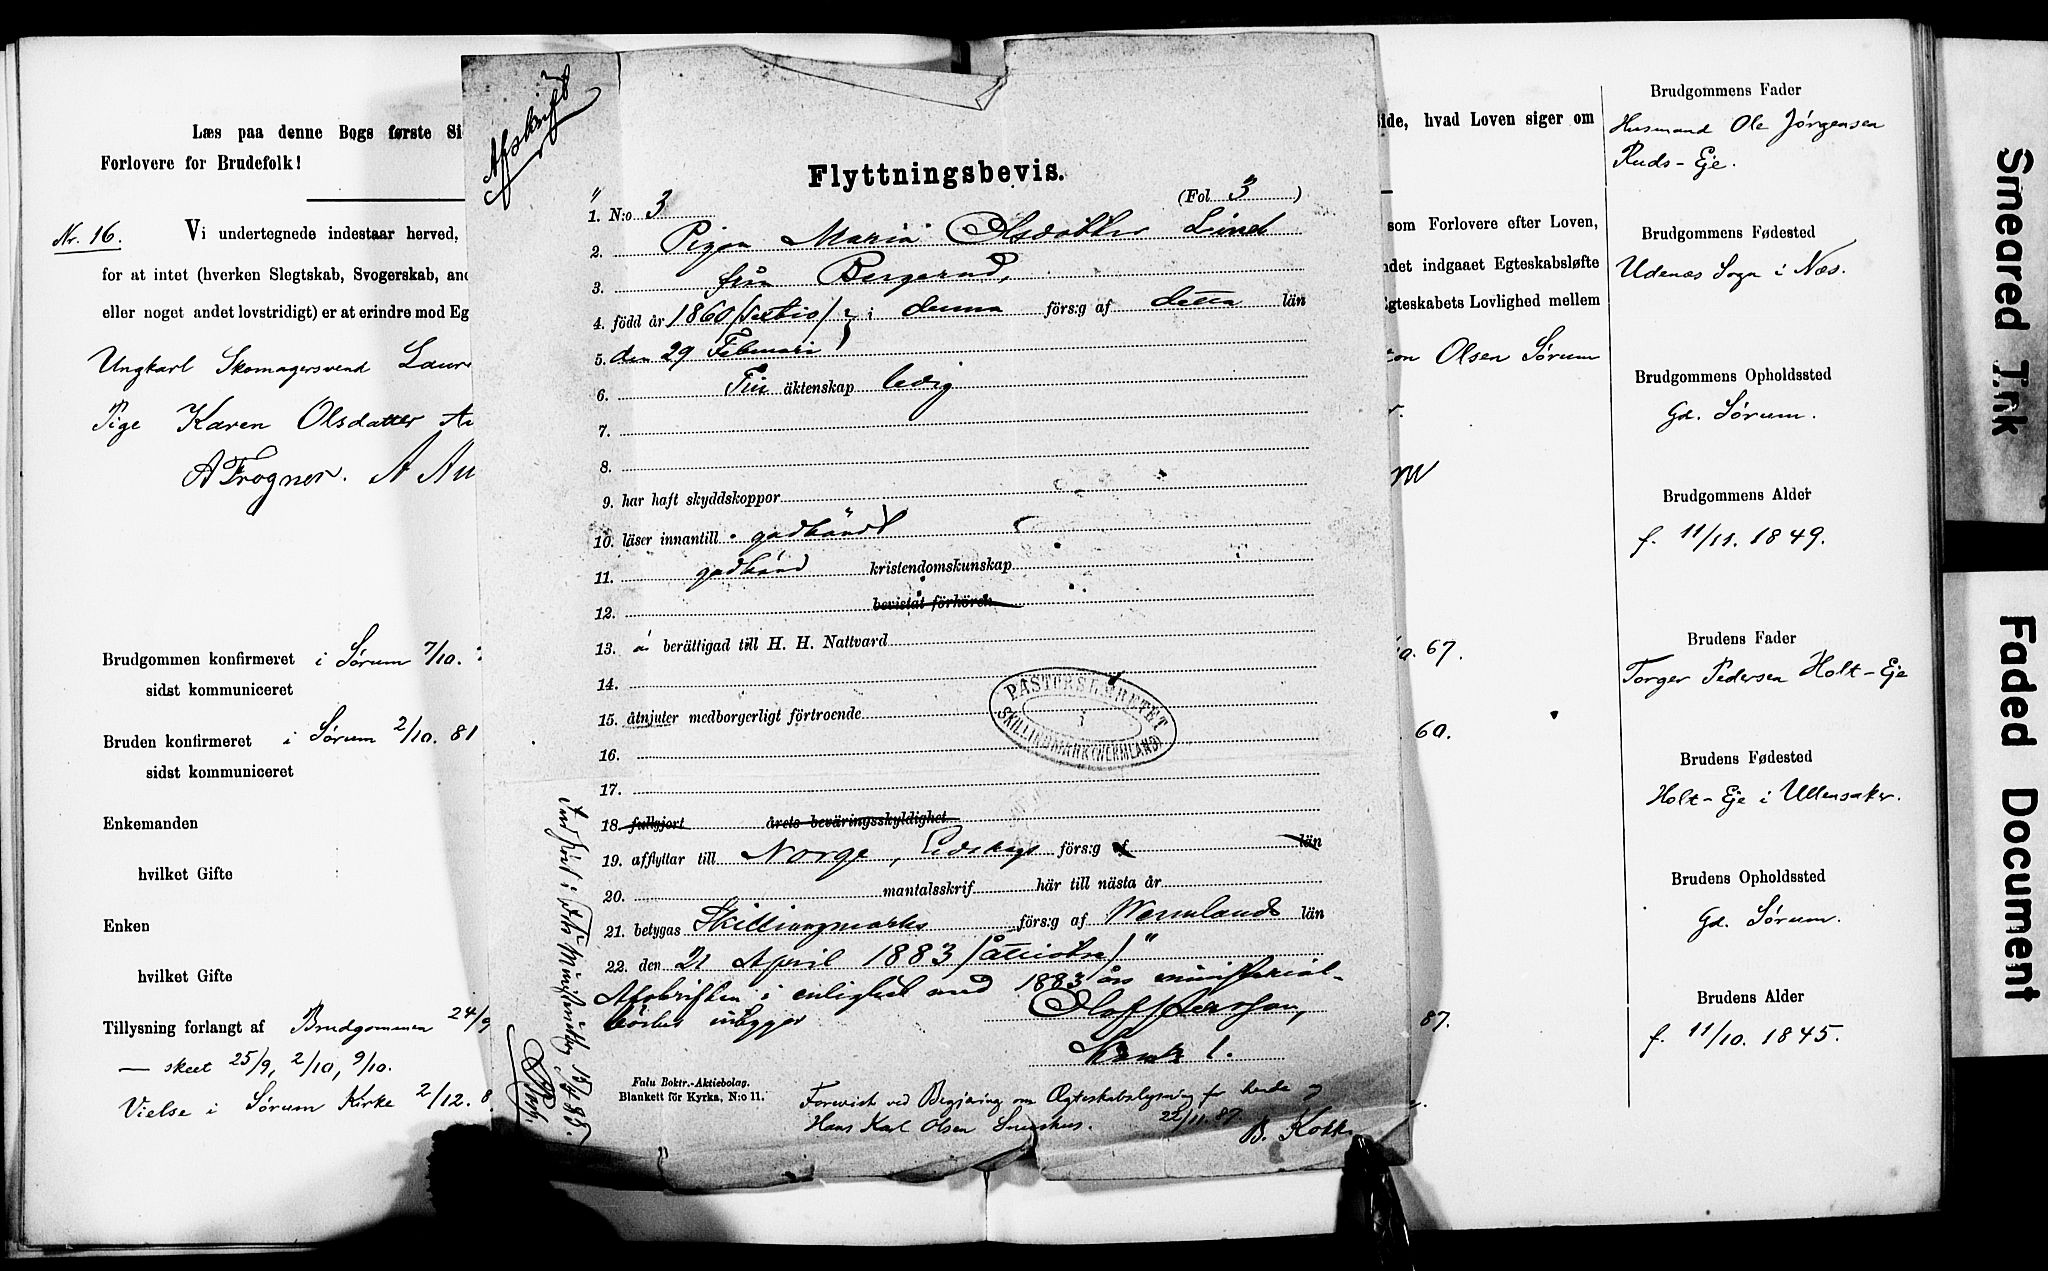 Læs paa denne Bogs første Si
Forlovere for Brudefolk!
Nr. 16.
Vi undertegnede indestaar herved,
for at intet (hverken Slegtskab, Svogerskab, and
eller noget andet lovstridigt) er at erindre mod Eg
Ungkarl Skomagersvend Laur
Pige Karen Olsdatter
A Frogner. A
Brudgommen konfirmeret i Sørum 7/10.
sidst kommuniceret
Bruden konfirmeret i Sørum 2/10. 81
sidst kommuniceret
Enkemanden
hvilket Gifte
Enken
hvilket Gifte
Tillysning forlangt af Brudgommen 24/9
— skeet 25/9, 2/10, 9/10.
Vielse i Sørum Kirke 2/12. 8
Afskrift
Flyttningsbevis.
1. N:o 3 (Fol 3 )
2. Pigan Maria Olsdotter Lind
3. från Bergerud,
4. född år 1860 (sextio) i denna förs:g af detta län
5. den 29 Februari
6. Fri äktenskap ledig
7.
8.
9. har haft skyddskoppor
10. läser innantill godkändt
11. godkänd kristendomskunskap
12. bevistat förhören
13. är berättigad till H. H. Nattvard
14.
15. åtnjuter medborgerligt förtroende
16.
17.
18. fullgjort årets beväringsskyldighet
19. afflyttar till Norge, Eidskogs förs:g af län
20. mantalsskrif här till nästa år
21. betygas Skillingmarks förs:g af Wermlands län
22. den 21 April 1883 (åttiotre)
Afskriften i enlighet med 1883 års ministerial-
böcker intygar
Olof Persson,
PASTORSEMBETET
I
SKILLINGMARK (WERMLAND)
Falu Boktr.-Aktiebolag.
Blankett för Kyrka, N:o 11.
Forevist ved Begjæring om Ægteskabslysning for hende og
Hans Karl Olsen Snushus. 22/11. 87
B. Kok
ide, hvad Loven siger om
som Forlovere efter Loven,
ndet indgaaet Egteskabsløfte
Egteskabets Lovlighed mellem
Olsen Sørum
67.
60.
87.
Brudgommens Fader
Husmand Ole Jørgensen
Ruds-Eje.
Brudgommens Fødested
Udenæs Sogn i Næs.
Brudgommens Opholdssted
Gd. Sørum.
Brudgommens Alder
f. 11/11. 1849.
Brudens Fader
Torger Pedersen Holt-Eje
Brudens Fødested
Holt-Eje i Ullensaker.
Brudens Opholdssted
Gd. Sørum.
Brudens Alder
f. 11/10. 1845.
Smeared Ink
Faded Document